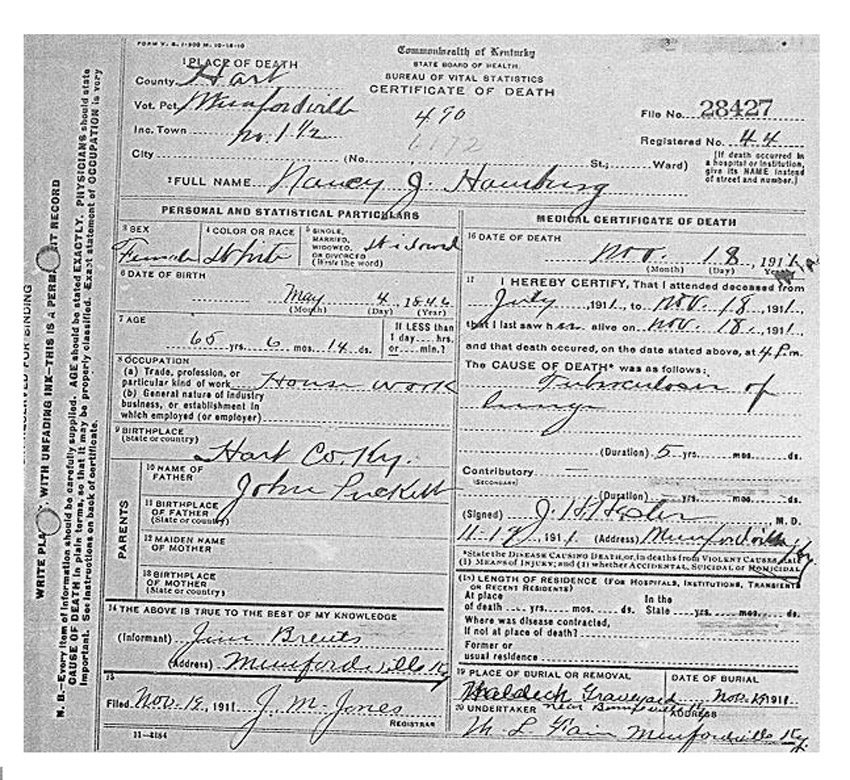 FORM V. S. 1-300 M. 10-16-10
Commonwealth of Kentucky
STATE BOARD OF HEALTH.
BUREAU OF VITAL STATISTICS
CERTIFICATE OF DEATH
1 PLACE OF DEATH
County Hart
Vot. Pct. Munfordville
490
File No. 28427
Inc. Town No. 1 1/2
6172
Registered No. 44
City (No. St.; Ward)
[If death occurred in a hospital or institution, give its NAME instead of street and number.]
2 FULL NAME Nancy J.
PERSONAL AND STATISTICAL PARTICULARS
3 SEX Female
4 COLOR OR RACE White
5 SINGLE, MARRIED, WIDOWED, OR DIVORCED (Write the word) Widowed
6 DATE OF BIRTH
May 4, 1846
(Month) (Day) (Year)
7 AGE
65 yrs. 6 mos. 14 ds.
If LESS than 1 day... hrs. or ... min.?
8 OCCUPATION
(a) Trade, profession, or particular kind of work House work
(b) General nature of industry business, or establishment in which employed (or employer)
9 BIRTHPLACE
(State or country) Hart Co. Ky.
PARENTS
10 NAME OF FATHER John Puckett
11 BIRTHPLACE OF FATHER (State or country)
12 MAIDEN NAME OF MOTHER
13 BIRTHPLACE OF MOTHER (State or country)
14 THE ABOVE IS TRUE TO THE BEST OF MY KNOWLEDGE
(Informant) Jim Brents
(Address) Munfordville Ky
15
Filed Nov. 19, 1911 J. M. Jones
REGISTRAR
11-3184
MEDICAL CERTIFICATE OF DEATH
16 DATE OF DEATH
Nov. 18, 1911
(Month) (Day) Year)
17 I HEREBY CERTIFY, That I attended deceased from
July, 1911, to Nov. 18, 1911,
that I last saw her alive on Nov. 18, 1911,
and that death occured, on the date stated above, at 4 P.m.
The CAUSE OF DEATH* was as follows:
Tuberculosis of
lungs
(Duration) 5 yrs. mos. ds.
Contributory
(SECONDARY)
(Duration) yrs. mos. ds.
(Signed) J. H. M. D.
11-19, 1911 (Address) Munfordville Ky
*State the DISEASE CAUSING DEATH, or, in deaths from VIOLENT CAUSES, state
(1) MEANS OF INJURY; and (2) whether ACCIDENTAL, SUICIDAL or HOMICIDAL
(18) LENGTH OF RESIDENCE (FOR HOSPITALS, INSTITUTIONS, TRANSIENTS OR RECENT RESIDENTS)
At place of death yrs. mos. ds. In the State yrs. mos. ds.
Where was disease contracted, If not at place of death?
Former or usual residence
19 PLACE OF BURIAL OR REMOVAL
DATE OF BURIAL
Graveyard Nov. 19 1911
near
20 UNDERTAKER
ADDRESS
Munfordville Ky.
RESERVED FOR BINDING
WRITE WITH UNFADING INK—THIS IS A RECORD
N. B.—Every item of information should be carefully supplied. AGE should be stated EXACTLY. PHYSICIANS should state
CAUSE OF DEATH in plain terms, so that it may be properly classified. Exact statement of OCCUPATION is very
important. See instructions on back of certificate.